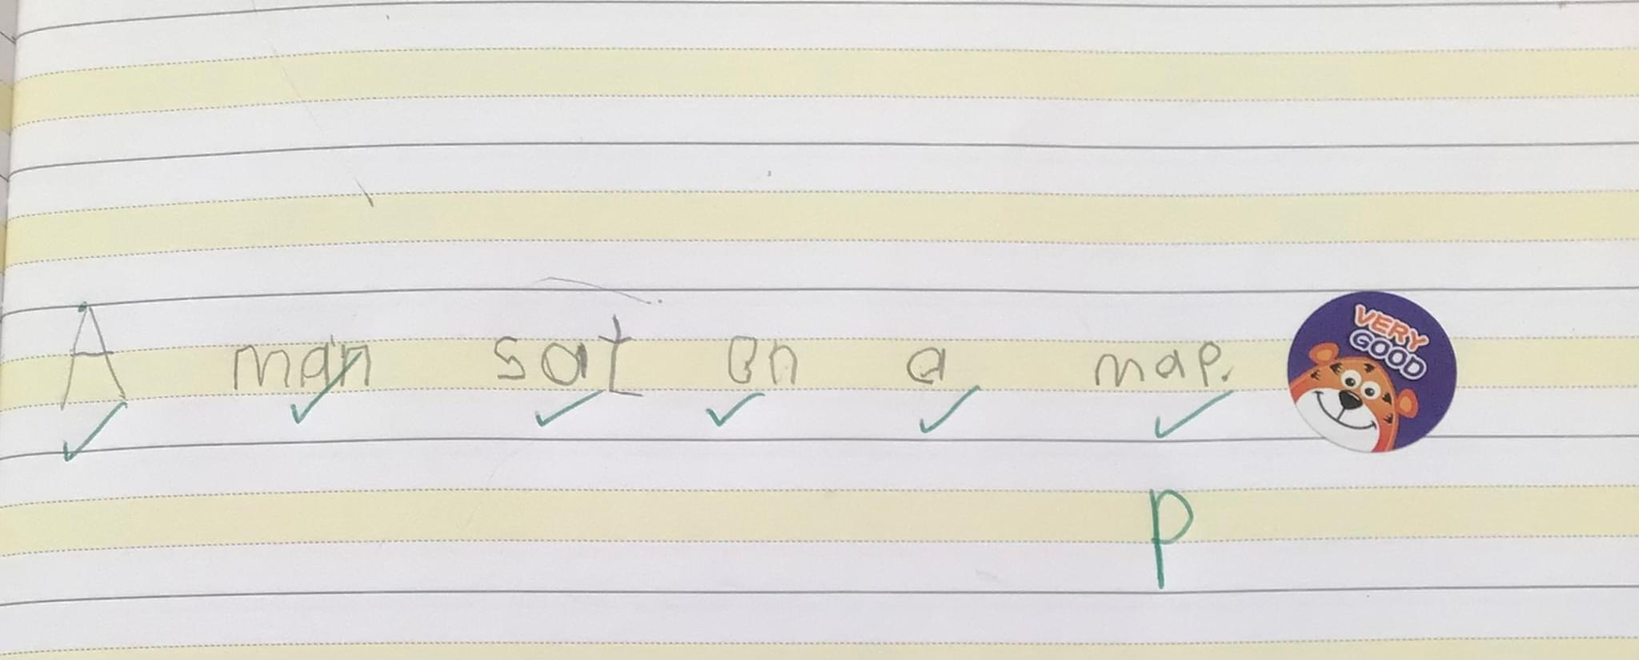 A man sat on a map.
VERY
GOOD
p